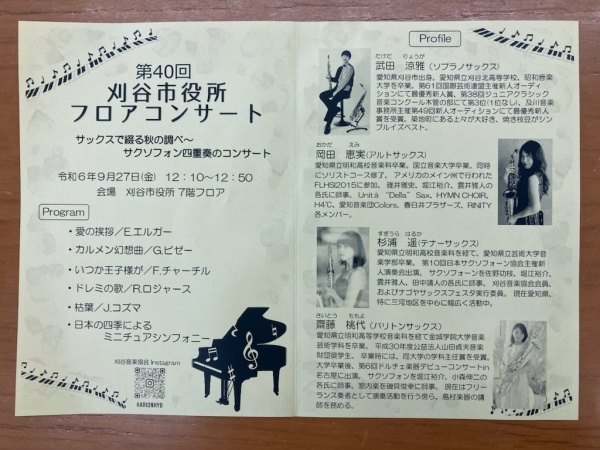 第40回
刈谷市役所
フロアコンサート
サックスで綴る秋の調べ～
サクソフォン四重奏のコンサート
令和6年9月27日(金) 12:10～12:50
会場 刈谷市役所 7階フロア
Program
・愛の挨拶/E.エルガー
・カルメン幻想曲/G.ビゼー
・いつか王子様が/F.チャーチル
・ドレミの歌/R.ロジャース
・枯葉/J.コズマ
・日本の四季による
ミニチュアシンフォニー
刈谷音楽協会 Instagram
KARIONKYO
Profile
たけだ りょうが
武田 涼雅(ソプラノサックス)
愛知県刈谷市出身。愛知県立刈谷北高等学校、昭和音楽
大学を卒業。第61回国際芸術連盟主催新人オーディ
ションにて最優秀新人賞、第38回ジュニアクラシック
音楽コンクール木管の部にて第3位(1位なし)、及川音楽
事務所主催第49回新人オーディションにて最優秀新人
賞を受賞。築地町にあるとんかつ屋が大好き。焼き枝豆がシン
プルイズベスト。
おかだ えみ
岡田 恵実(アルトサックス)
愛知県立明和高校音楽科卒業。国立音楽大学卒業。同時
にソリストコース修了。 アメリカのメイン州で行われた
FLHSI2015に参加。 雲井雅人の
各氏に師事。 Unità “Della” Sax、HYMN CHOIR、
H4℃、愛知音楽団Colors、春日井ブラザーズ、RiNITY
各メンバー。
すぎうら はるか
杉浦 遥(テナーサックス)
愛知県立明和高校音楽科を経て、愛知県立芸術大学音
楽学部卒業。 第10回日本サクソフォーン協会主催新
人演奏会出演。 サクソフォーンを佐野功枝、堀江裕介、
雲井雅人、田中靖人の各氏に師事。 刈谷音楽協会会員、
およびナゴヤサックスフェスタ実行委員。 現在愛知県、
特に三河地区を中心に幅広く活動中。
さいとう ももよ
齋藤 桃代(バリトンサックス)
愛知県立明和高等学校音楽科を経て金城学院大学音楽
芸術学科を卒業。 平成30年度公益法人山田貞夫音楽
財団奨学生。 卒業時には、同大学の学科主任賞を受賞。
大学卒業後、第6回ドルチェ楽器デビューコンサートin
名古屋に出演。 サクソフォンを堀江裕介、小森伸二の
各氏に師事。室内楽を磯貝俊幸に師事。 現在はフリー
ランス奏者として演奏活動を行う傍ら、島村楽器の講
師を務める。